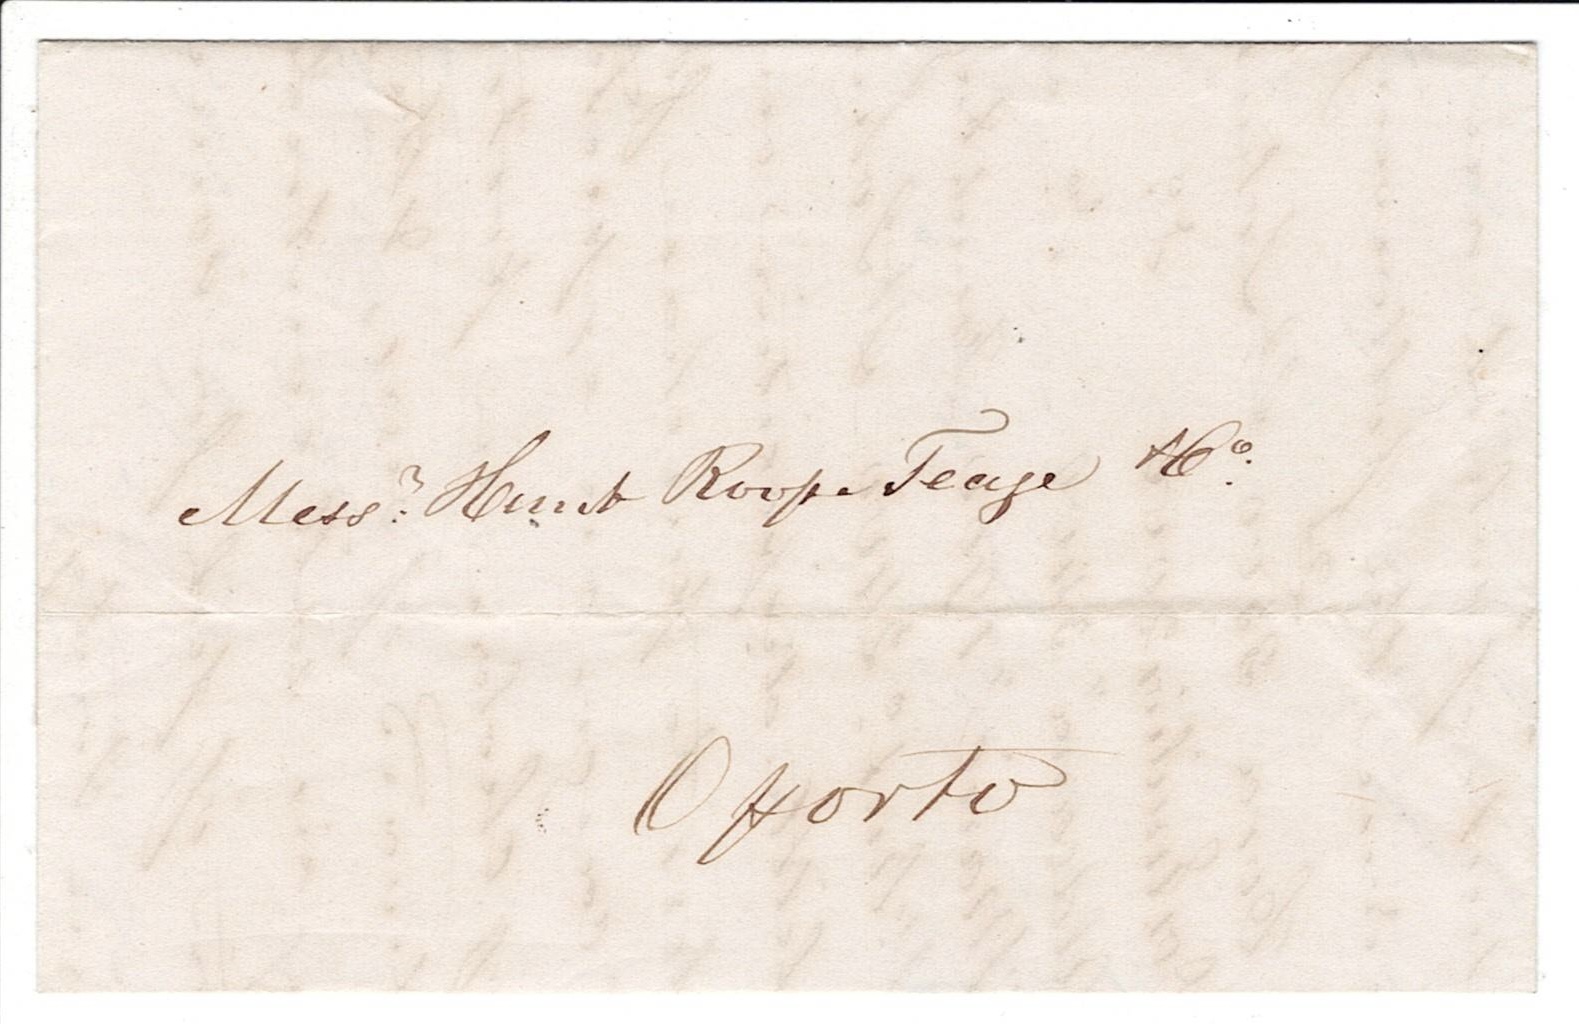 Messrs. Hunt Roope Teage & Co.
Oporto